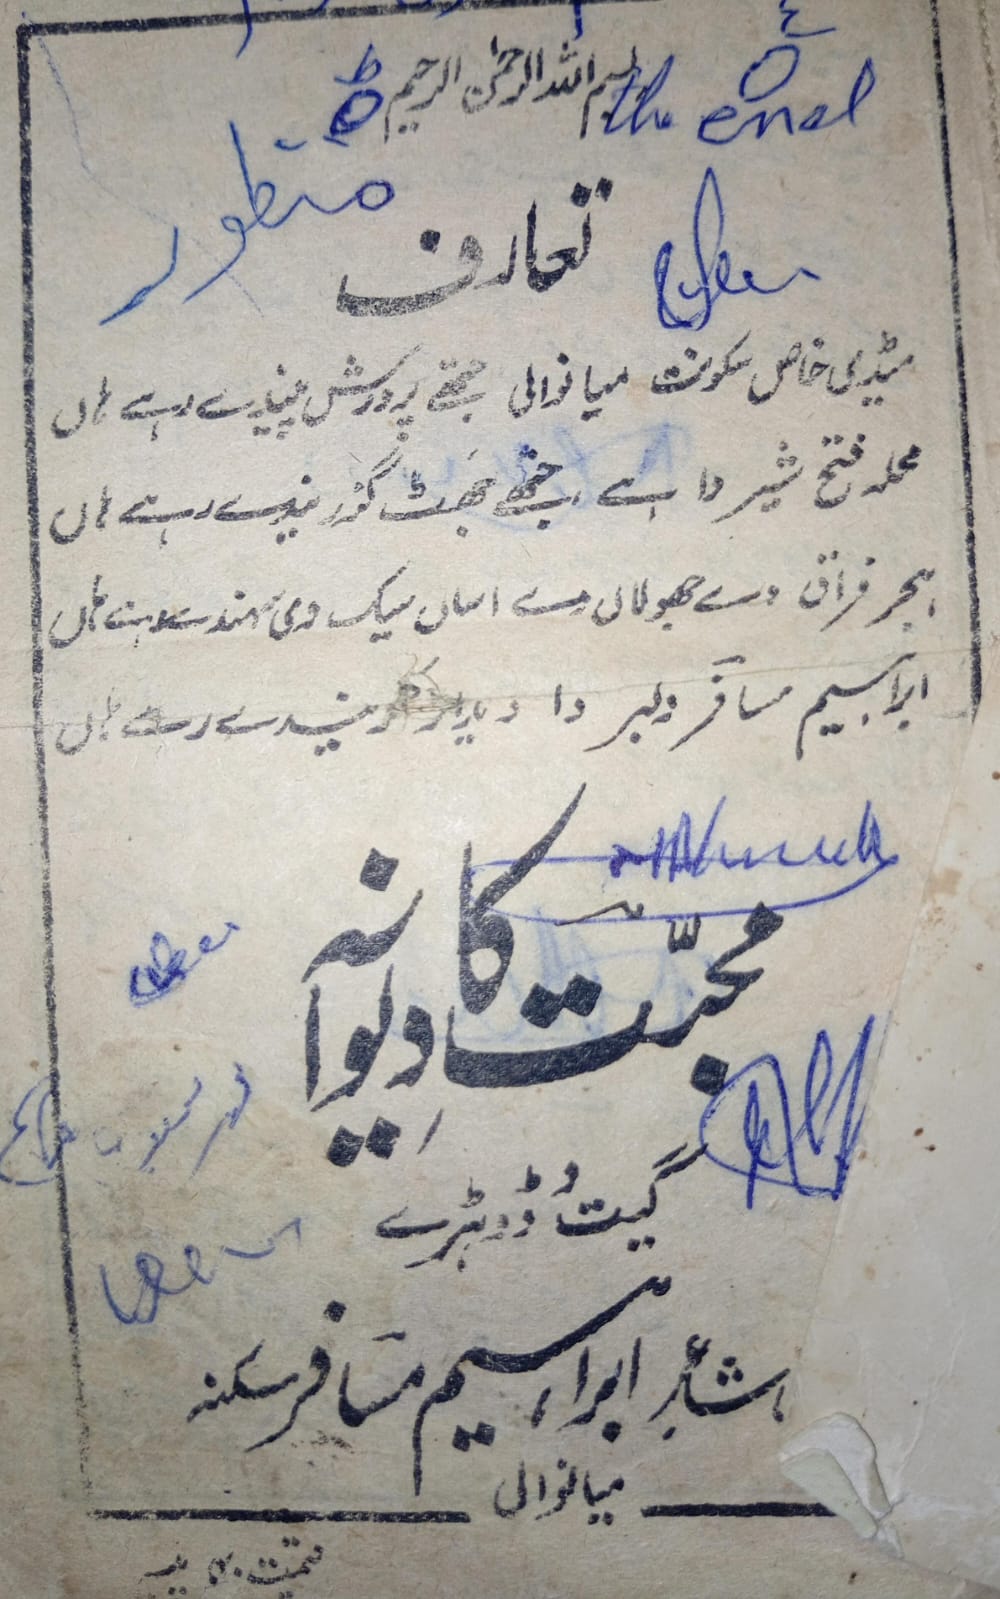 بسم اللہ الرحمٰن الرحیم
the end
منظور
تعارف
میڈی خاص سکونت میانوالی جتھے پرورش پیندے رہے ہاں
محلہ فتح شیر دا ہے جتھے جھٹ گزریندے رہے ہاں
ہجر فراق دے جھولاں دے اساں سیک وی سہندے رہے ہاں
ابراہیم مسافر دلبر دا دیدار کریندے رہے ہاں
محبّت کا دِیوانہ
گیت ڈوہڑے
شاعر ابراہیم مسافر سکنہ
میانوالی
قیمت پیسہ